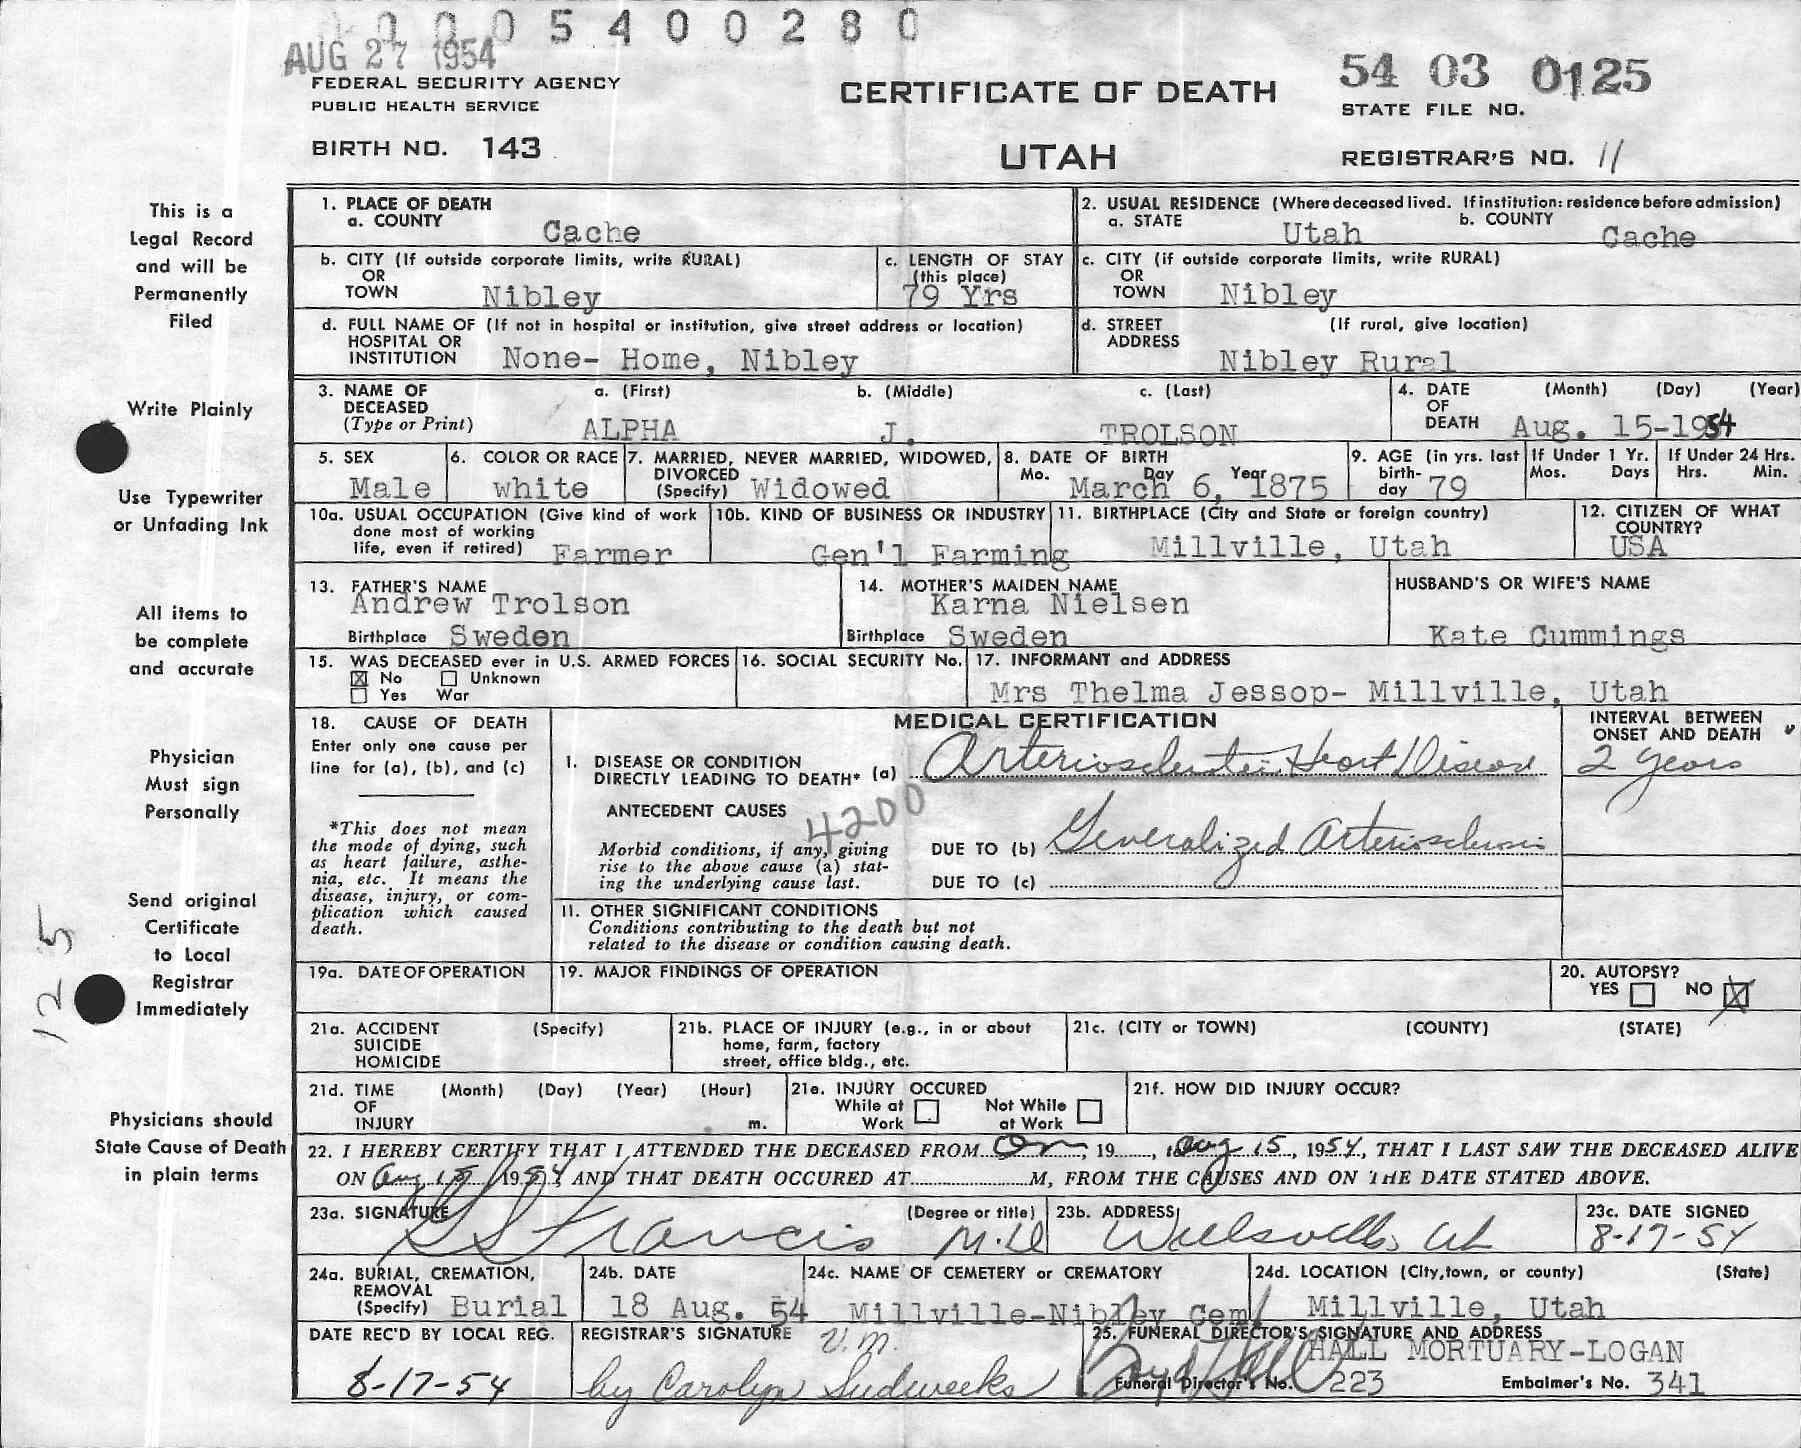 0005400280
AUG 27 1954
FEDERAL SECURITY AGENCY
PUBLIC HEALTH SERVICE
CERTIFICATE OF DEATH
54 03 0125
STATE FILE NO.
BIRTH NO. 143
UTAH
REGISTRAR'S NO. 11
This is a
Legal Record
and will be
Permanently
Filed
Write Plainly
Use Typewriter
or Unfading Ink
All items to
be complete
and accurate
Physician
Must sign
Personally
Send original
Certificate
to Local
Registrar
Immediately
125
Physicians should
State Cause of Death
in plain terms
1. PLACE OF DEATH
a. COUNTY Cache
2. USUAL RESIDENCE (Where deceased lived. If institution: residence before admission)
a. STATE Utah b. COUNTY Cache
b. CITY (If outside corporate limits, write RURAL)
OR
TOWN Nibley
c. LENGTH OF STAY
(this place)
79 Yrs
c. CITY (if outside corporate limits, write RURAL)
OR
TOWN Nibley
d. FULL NAME OF (If not in hospital or institution, give street address or location)
HOSPITAL OR
INSTITUTION None- Home, Nibley
d. STREET (If rural, give location)
ADDRESS
Nibley Rural
3. NAME OF a. (First) b. (Middle) c. (Last)
DECEASED
(Type or Print) ALPHA J. TROLSON
4. DATE (Month) (Day) (Year)
OF
DEATH Aug. 15-1954
5. SEX
Male
6. COLOR OR RACE
white
7. MARRIED, NEVER MARRIED, WIDOWED,
DIVORCED
(Specify) Widowed
8. DATE OF BIRTH
Mo. Day Year
March 6, 1875
9. AGE (in yrs. last
birth-
day 79
If Under 1 Yr.
Mos. Days
If Under 24 Hrs.
Hrs. Min.
10a. USUAL OCCUPATION (Give kind of work
done most of working
life, even if retired) Farmer
10b. KIND OF BUSINESS OR INDUSTRY
Gen'l Farming
11. BIRTHPLACE (City and State or foreign country)
Millville, Utah
12. CITIZEN OF WHAT
COUNTRY?
USA
13. FATHER'S NAME
Andrew Trolson
Birthplace Sweden
14. MOTHER'S MAIDEN NAME
Karna Nielsen
Birthplace Sweden
HUSBAND'S OR WIFE'S NAME
Kate Cummings
15. WAS DECEASED ever in U.S. ARMED FORCES
☒ No ☐ Unknown
☐ Yes War
16. SOCIAL SECURITY No.
17. INFORMANT and ADDRESS
Mrs Thelma Jessop- Millville, Utah
18. CAUSE OF DEATH
Enter only one cause per
line for (a), (b), and (c)
*This does not mean
the mode of dying, such
as heart failure, asthe-
nia, etc. It means the
disease, injury, or com-
plication which caused
death.
MEDICAL CERTIFICATION
INTERVAL BETWEEN
ONSET AND DEATH
I. DISEASE OR CONDITION
DIRECTLY LEADING TO DEATH* (a) Arteriosclerotic Heart Disease 2 years
ANTECEDENT CAUSES
4200
Morbid conditions, if any, giving
rise to the above cause (a) stat-
ing the underlying cause last.
DUE TO (b) Generalized Arteriosclerosis
DUE TO (c)
II. OTHER SIGNIFICANT CONDITIONS
Conditions contributing to the death but not
related to the disease or condition causing death.
19a. DATE OF OPERATION
19. MAJOR FINDINGS OF OPERATION
20. AUTOPSY?
YES ☐ NO ☒
21a. ACCIDENT (Specify)
SUICIDE
HOMICIDE
21b. PLACE OF INJURY (e.g., in or about
home, farm, factory
street, office bldg., etc.
21c. (CITY or TOWN) (COUNTY) (STATE)
21d. TIME (Month) (Day) (Year) (Hour)
OF
INJURY m.
21e. INJURY OCCURED
While at ☐ Not While ☐
Work at Work
21f. HOW DID INJURY OCCUR?
22. I HEREBY CERTIFY THAT I ATTENDED THE DECEASED FROM On, 19......, Aug 15, 1954, THAT I LAST SAW THE DECEASED ALIVE
ON Aug 15 1954 AND THAT DEATH OCCURED AT M, FROM THE CAUSES AND ON THE DATE STATED ABOVE.
23a. SIGNATURE (Degree or title)
Francis M.D
23b. ADDRESS
Wellsville, Ut
23c. DATE SIGNED
8-17-54
24a. BURIAL, CREMATION,
REMOVAL
(Specify) Burial
24b. DATE
18 Aug. 54
24c. NAME OF CEMETERY or CREMATORY
Millville-Nibley Cem
24d. LOCATION (City, town, or county) (State)
Millville, Utah
DATE REC'D BY LOCAL REG.
8-17-54
REGISTRAR'S SIGNATURE V.M.
by Carolyn Sudweeks
25. FUNERAL DIRECTOR'S SIGNATURE AND ADDRESS
Boyd Hall HALL MORTUARY-LOGAN
Funeral Director's No. 223 Embalmer's No. 341